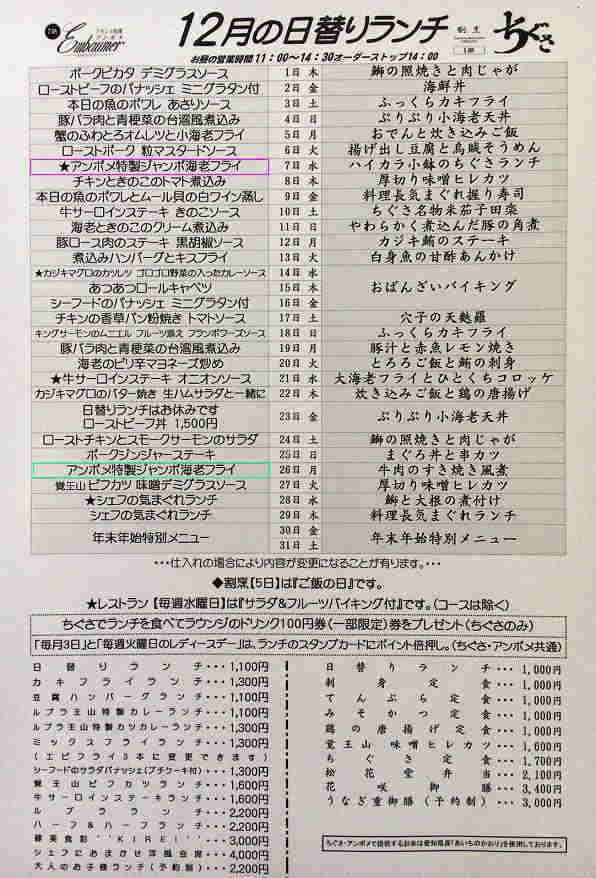 Embaumer
12月の日替りランチ
割烹
ちぐさ
お昼の営業時間11:00〜14:30オーダーストップ14:00
ポークピカタ デミグラスソース 1日 木 鰤の照焼きと肉じゃが
ローストビーフのパナッシェ ミニグラタン付 2日 金 海鮮丼
本日の魚のポワレ あさりソース 3日 土 ふっくらカキフライ
豚バラ肉と青梗菜の台湾風煮込み 4日 日 ぷりぷり小海老天丼
蟹のふわとろオムレツと小海老フライ 5日 月 おでんと炊き込みご飯
ローストポーク 粒マスタードソース 6日 火 揚げ出し豆腐と烏賊そうめん
★アンボメ特製ジャンボ海老フライ 7日 水 ハイカラ小鉢のちぐさランチ
チキンときのこのトマト煮込み 8日 木 厚切り味噌ヒレカツ
本日の魚のポワレとムール貝の白ワイン蒸し 9日 金 料理長気まぐれ握り寿司
牛サーロインステーキ きのこソース 10日 土 ちぐさ名物米茄子田楽
海老ときのこのクリーム煮込み 11日 日 やわらかく煮込んだ豚の角煮
豚ロース肉のステーキ 黒胡椒ソース 12日 月 カジキ鮪のステーキ
煮込みハンバーグとキスフライ 13日 火 白身魚の甘酢あんかけ
★カジキマグロのカツレツ ゴロゴロ野菜の入ったカレーソース 14日 水
あつあつロールキャベツ 15日 木 おばんざいバイキング
シーフードのパナッシェ ミニグラタン付 16日 金
チキンの香草パン粉焼き トマトソース 17日 土 穴子の天麩羅
キングサーモンのムニエル フルーツ添え フランボワーズソース 18日 日 ふっくらカキフライ
豚バラ肉と青梗菜の台湾風煮込み 19日 月 豚汁と赤魚レモン焼き
海老のピリ辛マヨネーズ炒め 20日 火 とろろご飯と鮪の刺身
★牛サーロインステーキ オニオンソース 21日 水 大海老フライとひとくちコロッケ
カジキマグロのバター焼き 生ハムサラダと一緒に 22日 木 炊き込みご飯と鶏の唐揚げ
日替りランチはお休みです
ローストビーフ丼 1,500円 23日 金 ぷりぷり小海老天丼
ローストチキンとスモークサーモンのサラダ 24日 土 鰤の照焼きと肉じゃが
ポークジンジャーステーキ 25日 日 まぐろ丼と串カツ
アンボメ特製ジャンボ海老フライ 26日 月 牛肉のすき焼き風煮
覚王山 ビフカツ 味噌デミグラスソース 27日 火 厚切り味噌ヒレカツ
★シェフの気まぐれランチ 28日 水 鰤と大根の煮付け
シェフの気まぐれランチ 29日 木 料理長気まぐれランチ
年末年始特別メニュー 30日 金 年末年始特別メニュー
31日 土
・・・仕入れの場合により内容が変更になることが有ります。・・・
◆割烹【5日】は『ご飯の日』です。
★レストラン【毎週水曜日】は『サラダ&フルーツバイキング付』です。(コースは除く)
ちぐさでランチを食べてラウンジのドリンク100円券(一部限定)券をプレゼント(ちぐさのみ)
「毎月3日」と「毎週火曜日のレディースデー」は、ランチのスタンプカードにポイント倍押し。(ちぐさ・アンボメ共通)
日替りランチ・・・1,100円
カキフライランチ・・・1,300円
豆腐ハンバーグランチ・・・1,100円
ルブラ王山特製カレーランチ・・・1,100円
ルブラ王山特製カツカレーランチ・・・1,300円
ミックスフライランチ・・・1,300円
(エビフライ3本に変更できます)
シーフードのサラダパナッシェ(プチケーキ付)・・・1,300円
覚王山ビフカツランチ・・・1,600円
牛サーロインステーキランチ・・・1,600円
ルブラランチ・・・2,200円
ハーフ&ハーフランチ・・・2,200円
健美食彩"KIREI"・・・3,000円
シェフにおまかせ洋風会席・・・4,000円
大人のお子様ランチ(予約制)・・・2,200円
日替りランチ・・・1,000円
刺身定食・・・1,000円
てんぷら定食・・・1,000円
みそかつ定食・・・1,000円
鶏の唐揚げ定食・・・1,000円
覚王山味噌ヒレカツ・・・1,600円
ちぐさ定食・・・1,700円
松花堂弁当・・・2,100円
花咲御膳・・・3,400円
うなぎ重御膳(予約制)・・・3,000円
ちぐさ・アンボメで提供するお米は愛知県産「あいちのかおり」を使用しております。